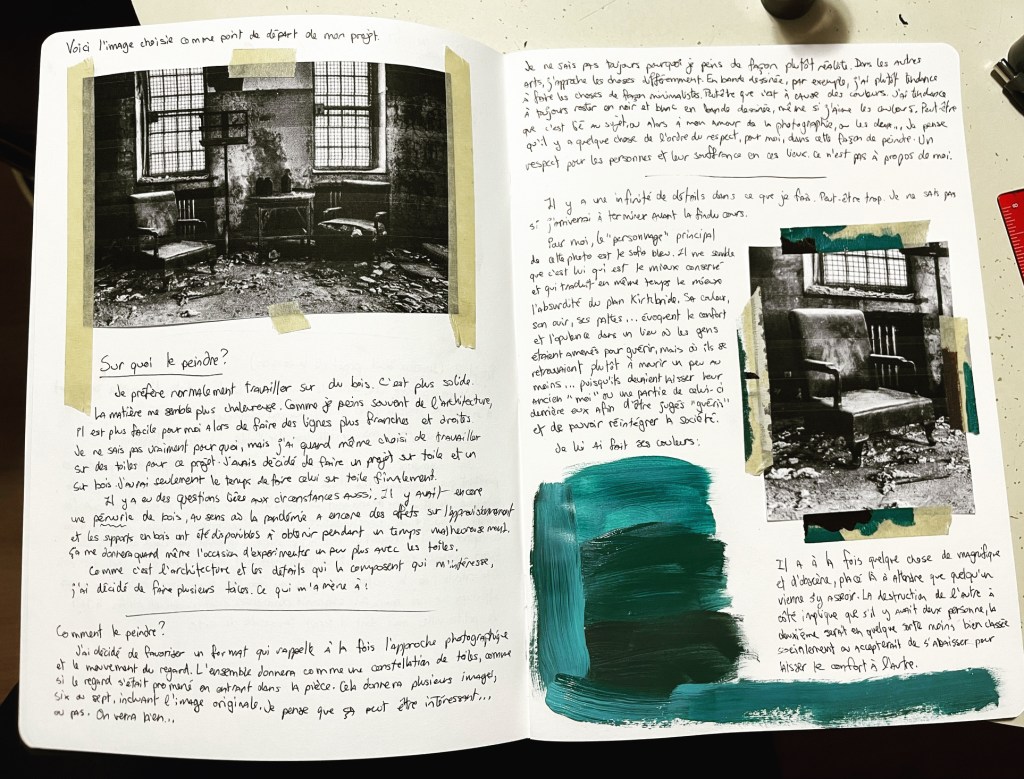 Voici l'image choisie comme point de départ de mon projet.
Sur quoi le peindre?
Je préfère normalement travailler sur du bois. C'est plus solide.
La matière me semble plus chaleureuse. Comme je peins souvent de l'architecture,
il est plus facile pour moi alors de faire des lignes plus franches et droites.
Je ne sais pas vraiment pourquoi, mais j'ai quand même choisi de travailler
sur des toiles pour ce projet. J'avais décidé de faire un projet sur toile et un
sur bois. J'aurai seulement le temps de faire celui sur toile finalement.
Il y a eu des questions liées aux circonstances aussi. Il y avait encore
une pénurie de bois, au sens où la pandémie a encore des effets sur l'approvisionnement
et les supports en bois ont été disponibles à obtenir pendant un temps malheureusement.
Ça me donnera quand même l'occasion d'expérimenter un peu plus avec les toiles.
Comme c'est l'architecture et les détails qui la composent qui m'intéresse,
j'ai décidé de faire plusieurs toiles. Ce qui m'amène à :
Comment le peindre?
J'ai décidé de favoriser un format qui rappelle à la fois l'approche photographique
et le mouvement du regard. L'ensemble donnera comme une constellation de toiles, comme
si le regard s'était promené en entrant dans la pièce. Cela donnera plusieurs images,
six ou sept, incluant l'image originale. Je pense que ça peut être intéressant...
ou pas. On verra bien...
Je ne sais pas toujours pourquoi je peins de façon plutôt réaliste. Dans les autres
arts, j'approche les choses différemment. En bande dessinée, par exemple, j'ai plutôt tendance
à faire les choses de façon minimaliste. Peut-être que c'est à cause des couleurs. J'ai tendance
à toujours rester en noir et blanc en bande dessinée, même si j'aime les couleurs. Peut-être
que c'est lié au sujet, ou alors à mon amour de la photographie, ou les deux... Je pense
qu'il y a quelque chose de l'ordre du respect, pour moi, dans cette façon de peindre. Un
respect pour les personnes et leur souffrance en ces lieux. Ce n'est pas à propos de moi.
Il y a une infinité de détails dans ce que je fais. Peut-être trop. Je ne sais pas
si j'arriverai à terminer avant la fin du cours.
Pour moi, le "personnage" principal
de cette photo est le sofa bleu. Il me semble
que c'est lui qui est le mieux conservé
et qui traduit en même temps le mieux
l'absurdité du plan Kirkbride. Sa couleur,
son cuir, ses pattes... évoquent le confort
et l'opulence dans un lieu où les gens
étaient amenés pour guérir, mais où ils se
retrouvaient plutôt à mourir un peu au
moins... puisqu'ils devaient laisser leur
ancien "moi" ou une partie de celui-ci
derrière eux afin d'être jugés "guéris"
et de pouvoir réintégrer la société.
Je lui ai fait ses couleurs :
Il a à la fois quelque chose de magnifique
et d'obscène, placé là à attendre que quelqu'un
vienne s'y asseoir. La destruction de l'autre à
côté implique que s'il y avait deux personne, la
deuxième serait en quelque sorte moins bien classée
socialement ou accepterait de s'abaisser pour
laisser le confort à l'autre.